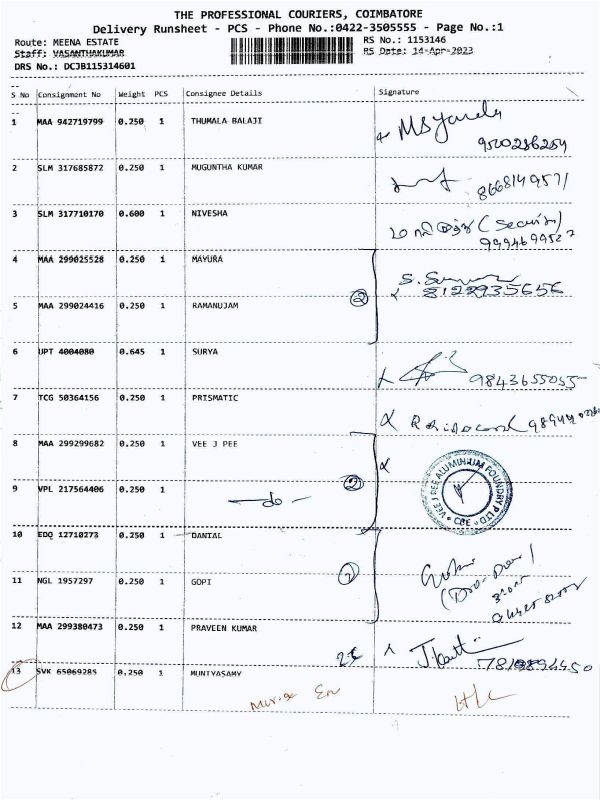 THE PROFESSIONAL COURIERS, COIMBATORE
Delivery Runsheet - PCS - Phone No.:0422-3505555 - Page No.:1
Route: MEENA ESTATE RS No.: 1153146
Staff: VASANTHAKUMAR RS Date: 14-Apr-2023
DRS No.: DCJB115314601
S No Consignment No Weight PCS Consignee Details Signature
1 MAA 942719799 0.250 1 THUMALA BALAJI
9500286259
2 SLM 317685872 0.250 1 MUGUNTHA KUMAR
8668149571
3 SLM 317710170 0.600 1 NIVESHA
(Security)
4 MAA 299025528 0.250 1 MAYURA
② 8122935656
5 MAA 299024416 0.250 1 RAMANUJAM
6 UPT 4004080 0.645 1 SURYA
9843655055
7 TCG 50364156 0.250 1 PRISMATIC
8 MAA 299299682 0.250 1 VEE J PEE
② VEE JPEE ALUMINIUM FOUNDRY P LTD
CBE
9 VPL 217564406 0.250 1
-do-
10 EDQ 12710273 0.250 1 DANIAL
11 NGL 1957297 0.250 1 GOPI
②
12 MAA 299380473 0.250 1 PRAVEEN KUMAR
13 SVK 65069285 0.250 1 MUNIYASAMY